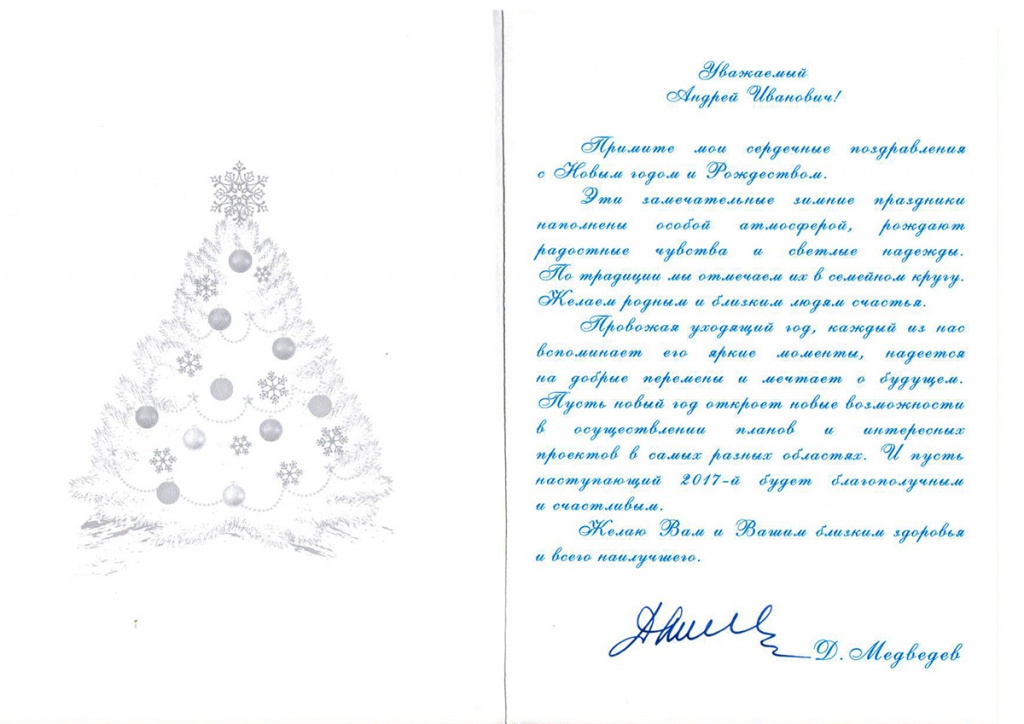 Уважаемый
Андрей Иванович!
Примите мои сердечные поздравления
с Новым годом и Рождеством.
Эти замечательные зимние праздники
наполнены особой атмосферой, рождают
радостные чувства и светлые надежды.
По традиции мы отмечаем их в семейном кругу.
Желаем родным и близким людям счастья.
Провожая уходящий год, каждый из нас
вспоминает его яркие моменты, надеется
на добрые перемены и мечтает о будущем.
Пусть новый год откроет новые возможности
в осуществлении планов и интересных
проектов в самых разных областях. И пусть
наступающий 2017-й будет благополучным
и счастливым.
Желаю Вам и Вашим близким здоровья
и всего наилучшего.
Д. Медведев